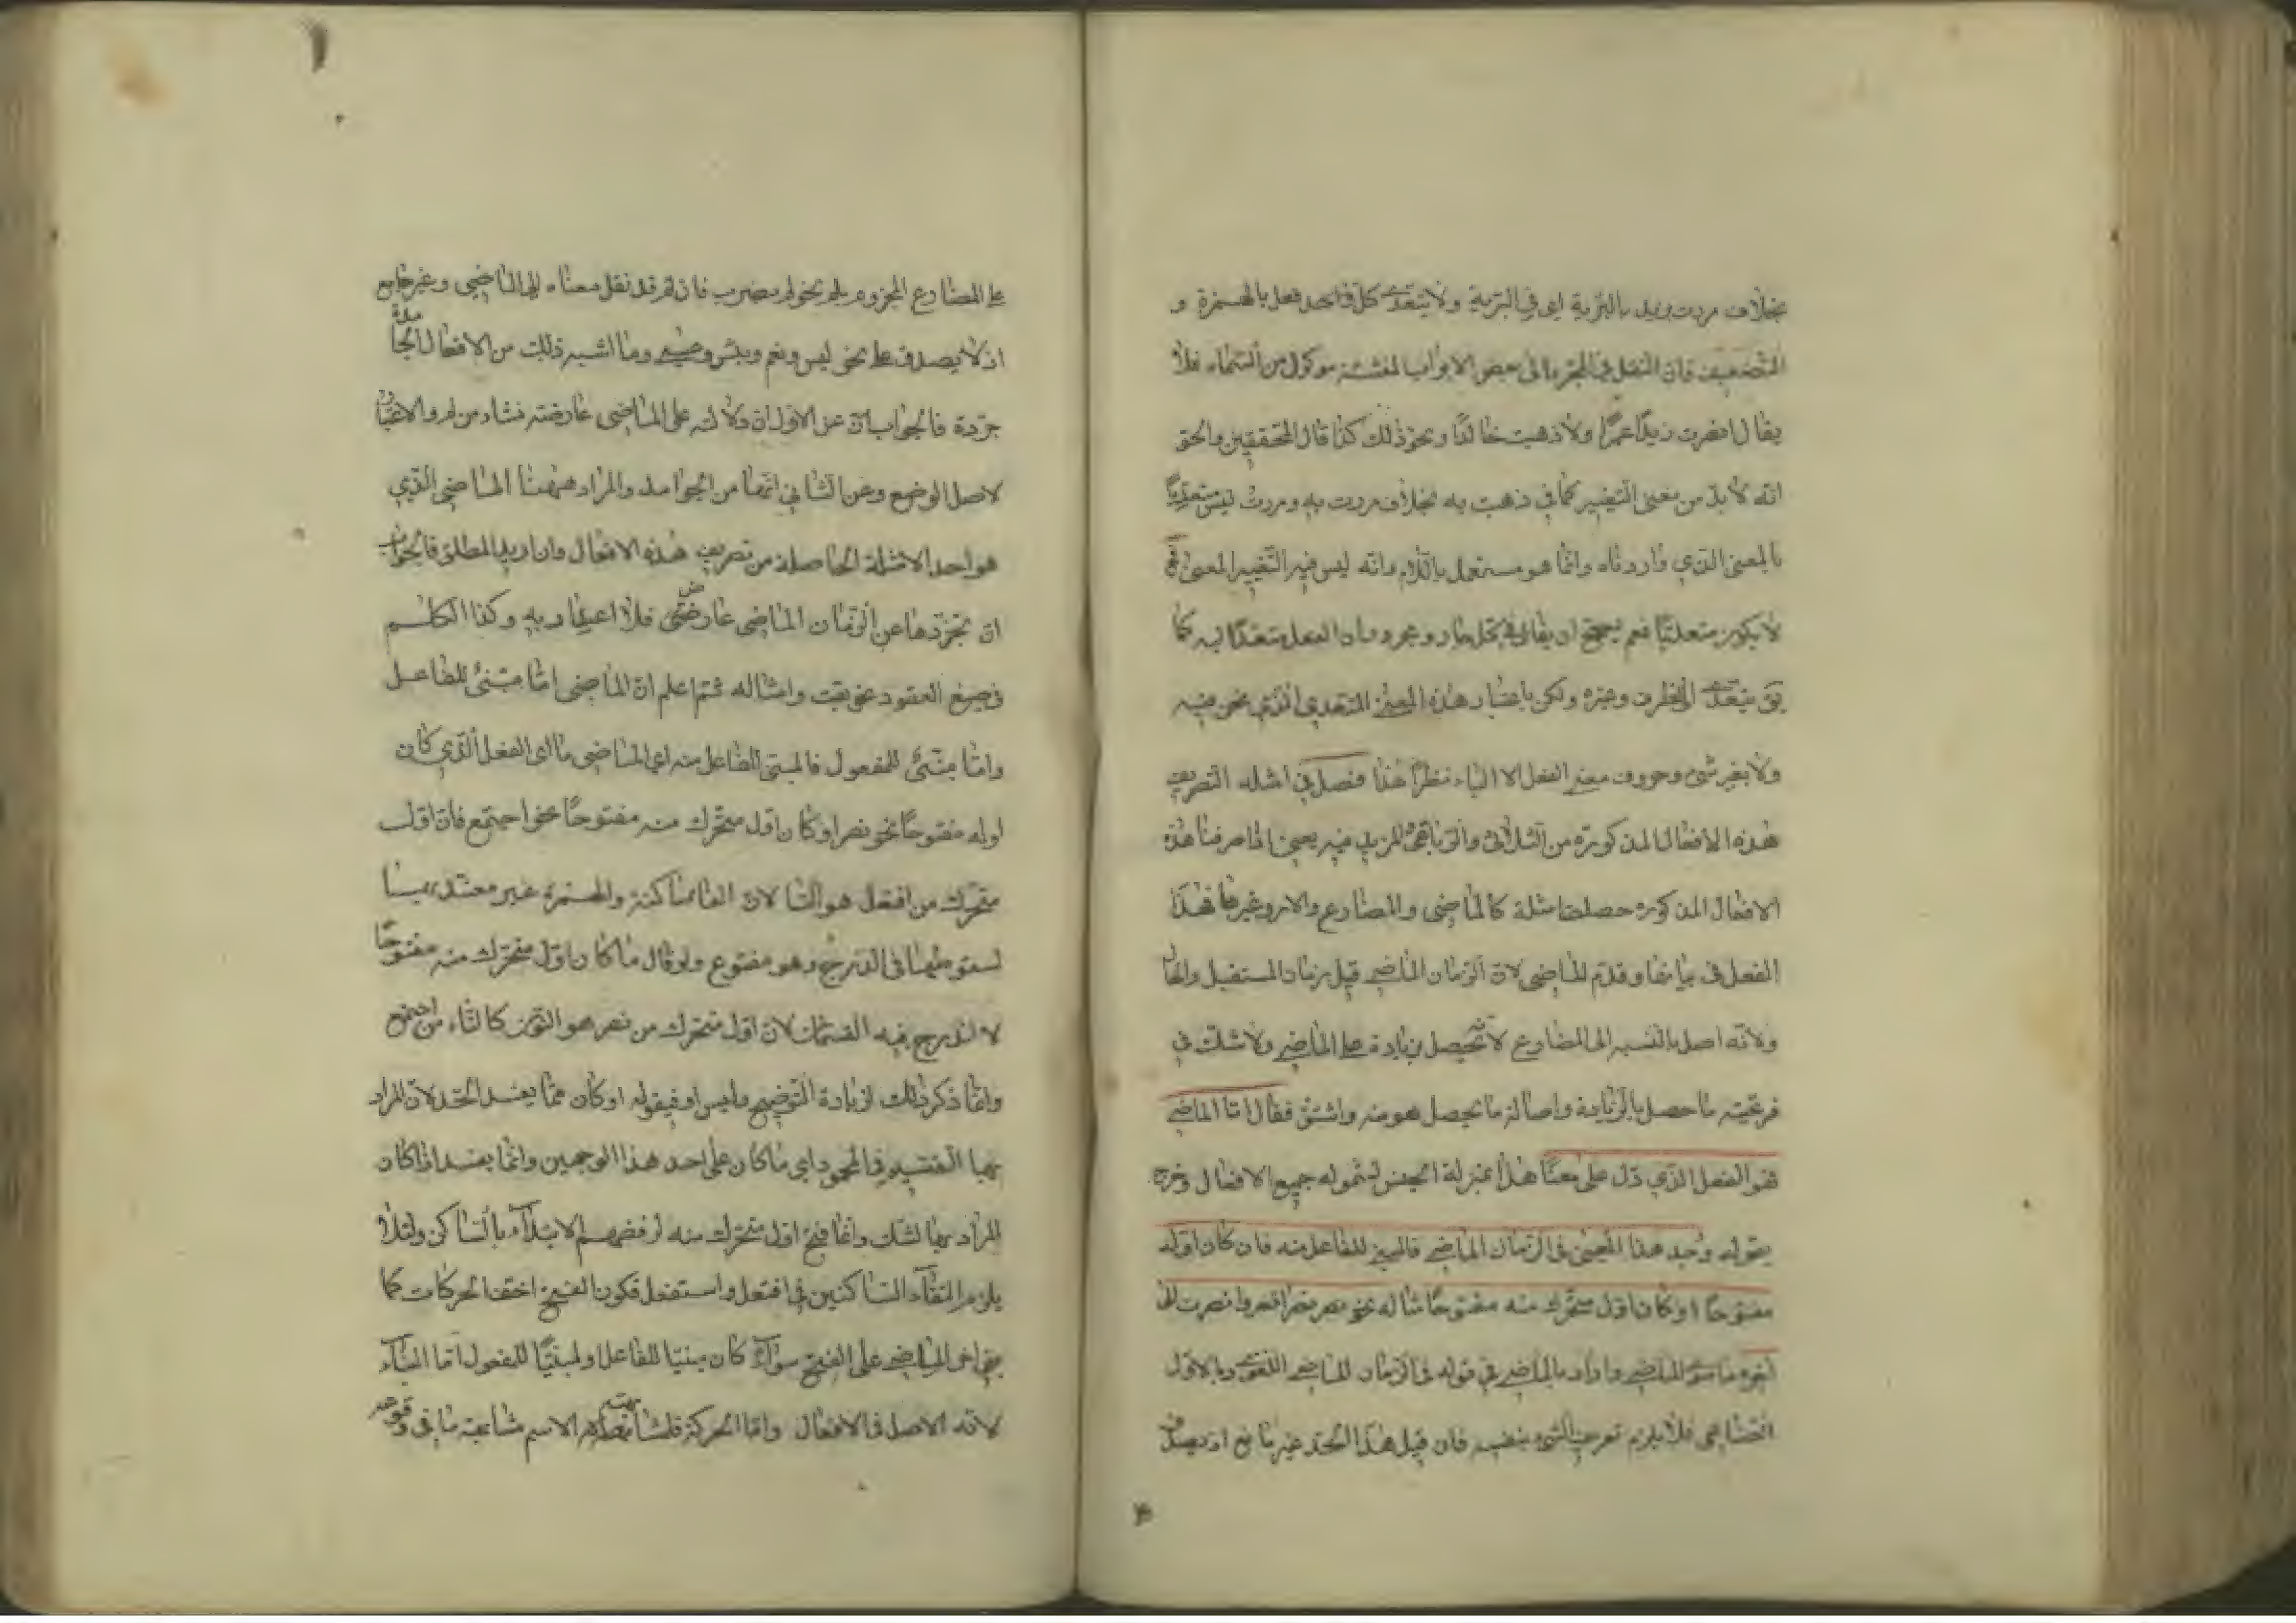 بخلاف مررت بزيد بالبرّية اي في البرّية ولا يتعدى كل فعل بالهمزة و
التضعيف فان النقل في المجرد الى بعض الابواب المنشعبة موكول من السماء فلا
يقال انصرت زيدًا عمرًا ولا ذهبت خالدًا ونحو ذلك كذا قال المحققين والحق
انه لا بدّ من معنى التغيير كما في ذهبت به بخلاف مررت به ومررت ليس متعديًا
بالمعنى الذي وانما هو مستعمل وانه ليس فيه التغيير المعنى
لا يكون متعديًا نعم يصح ان يقال في كل جار ومجرور ان الفعل متعدّ اليه كما
يق يتعدى الى الظرف وغيره ولكن باعتبار هذه المعنى المتعدي الذي نحن فيه
ولا يغير شئ وحروف معنى الفعل الا الباء نظرًا هذا فصل في امثلة التصريف
هذه الافعال المذكورة من الثلاثى والرباعى المزيد فيه يعنى اذا صرفنا هذه
الافعال المذكوره حصلت امثلة كالماضى والمضارع والامر وغيرها فهذا
الفعل فى بيانها وقدّم الماضى لان الزمان الماضى قبل زمان المستقبل والحال
ولانه اصل بالنسبه الى المضارع لانه يحصل بزيادة على الماضى ولا شك في
فرعيّته ما حصل بالزيادة واصالة ما يحصل هو منه واشتق فقال امّا الماضى
فهو الفعل الذي دل على معنًا هذا بمنزلة الجنس لشموله جميع الافعال وخرج
بقوله وجد هذا المعنى فى الزمان الماضى فالمبنى للفاعل منه فان كان اوله
مفتوحًا او كان اول متحرك منه مفتوحًا مثاله نحو نصر نصرا نصروا نصرت الى
آخره ما سوى الماضى واراد بالماضى في قوله فى الزمان الماضى اللغوى وبالاول
الصناعى فلا يلزم تعريف الشئ بنفسه فان قيل هذا الحد غير مانع اذ يصدق
على المضارع المجزوم بلم نحو لم يضرب فان لم قد نقل معناه الى الماضى وغير جامع
اذ لا يصدق على نحو ليس ونعم وبئس وعسى وما اشبه ذلك من الافعال الجامدة
جرّدة فالجواب ان عن الاول ان دلالته على الماضى عارضته نشاء من لم والاعتبار
لاصل الوضع وعن الثاني انها من الجوامد والمراد ههنا الماضى الذي
هو احد الامثلة الحاصلة من تصريف هذه الافعال وان اريد المطلق فالجواب
ان تجرّدها عن الزمان الماضى عارضى فلا اعتبار به وكذا الكلام
في صيغ العقود نحو بعت وامثاله ثم اعلم ان الماضى امّا مبنىّ للفاعل
وامّا مبنىّ للمفعول فالمبنى للفاعل منه اي الماضى ما اى الفعل الذي كان
اوله مفتوحًا نحو نصر او كان اول متحرك منه مفتوحًا نحو اجتمع فان اول
متحرك من افتعل هو التا لان الفا ساكنة والهمزة غير معتد بها
لسقوطها فى الدرج وهو مفتوح ولو قال ما كان اول متحرك منه مفتوحًا
لاندرج فيه القسمان لان اول متحرك من نصر هو النون كالتاء من اجتمع
وانما ذكر ذلك لزيادة التوضيح وليس او في قوله او كان ممّا يفسد الحد لان المراد
بها التقسيم في المحدود اي ما كان على احد هذا الوجهين وانما يفسد اذا كان
المراد بها الشك وانما فتح اول متحرك منه لرفضهم الابتداء بالساكن ولئلا
يلزم التقاء الساكنين في افتعل واستفعل فكون الفتح اخف الحركات كما
بنى اخر الماضى على الفتح سواء كان مبنيًا للفاعل او مبنيًا للمفعول امّا البناء
لانه الاصل فى الافعال وامّا الحركة فلمشابهته الاسم مشابهة ما فى وقوعه